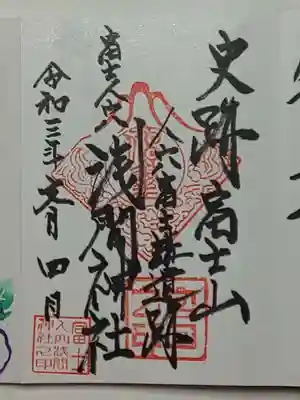 史跡富士山
人穴富士講遺跡
富士人穴
浅間神社
令和三年
月四日
富士
人穴浅間
神社之印